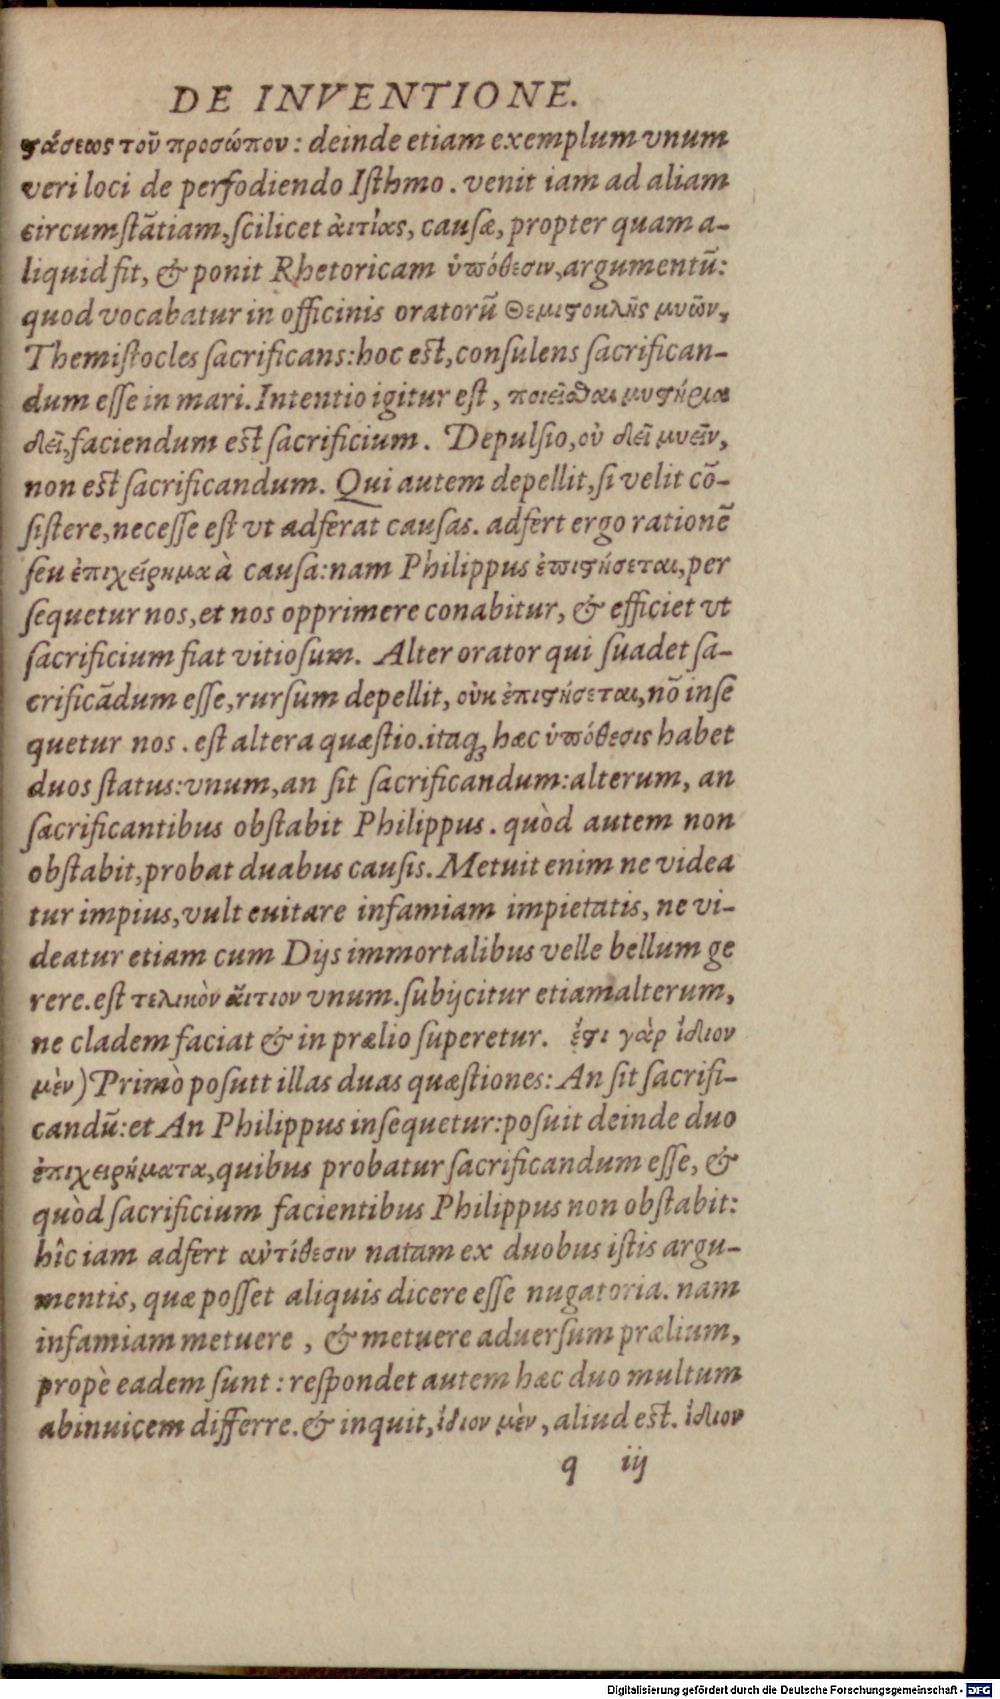 DE INVENTIONE.
ϛάσεως τοῦ προσώπου: deinde etiam exemplum vnum
veri loci de perfodiendo Iſthmo. venit iam ad aliam
circumſtātiam, ſcilicet ἀιτίας, cauſæ, propter quam a-
liquid fit, & ponit Rhetoricam ὑπόθεσιν, argumentū:
quod vocabatur in officinis oratorū Θεμιϛοκλῆς μυῶν,
Themiſtocles ſacrificans: hoc eſt, conſulens ſacrifican-
dum eſſe in mari. Intentio igitur est, ποιεῖσθαι μυϛήρια
δεῖ, faciendum eſt ſacrificium. Depulſio, οὐ δεῖ μυεῖν,
non eſt ſacrificandum. Qui autem depellit, ſi velit cō-
ſiſtere, neceſſe eſt vt adferat cauſas. adfert ergo rationē
ſeu ἐπιχείρημα à cauſa: nam Philippus ἐπιϛήσεται, per
ſequetur nos, et nos opprimere conabitur, & efficiet vt
ſacrificium fiat vitioſum. Alter orator qui ſuadet ſa-
crificādum eſſe, rurſum depellit, οὐκ ἐπιϛήσεται, nō inſe
quetur nos. eſt altera quæſtio. itaq; hæc ὑπόθεσις habet
duos ſtatus: vnum, an ſit ſacrificandum: alterum, an
ſacrificantibus obſtabit Philippus. quòd autem non
obſtabit, probat duabus cauſis. Metuit enim ne videa
tur impius, vult euitare infamiam impietatis, ne vi-
deatur etiam cum Dijs immortalibus velle bellum ge
rere. eſt τελικὸν ἄιτιον vnum. ſubijcitur etiam alterum,
ne cladem faciat & in prælio ſuperetur. ἔϛι γὰρ ἴδιον
μὲν) Primò posutt illas duas quæſtiones: An ſit ſacrifi-
candū: et An Philippus inſequetur: poſuit deinde duo
ἐπιχειρήματα, quibus probatur ſacrificandum eſſe, &
quòd ſacrificium facientibus Philippus non obſtabit:
hîc iam adfert αὐτίθεσιν natam ex duobus iſtis argu-
mentis, quæ poſſet aliquis dicere eſſe nugatoria. nam
infamiam metuere, & metuere aduerſum prælium,
propè eadem ſunt: reſpondet autem hæc duo multum
abinuicem differre. & inquit, ἴδιον μὲν, aliud eſt. ἴδιον
q iij
Digitalisierung gefördert durch die Deutsche Forschungsgemeinschaft - DFG